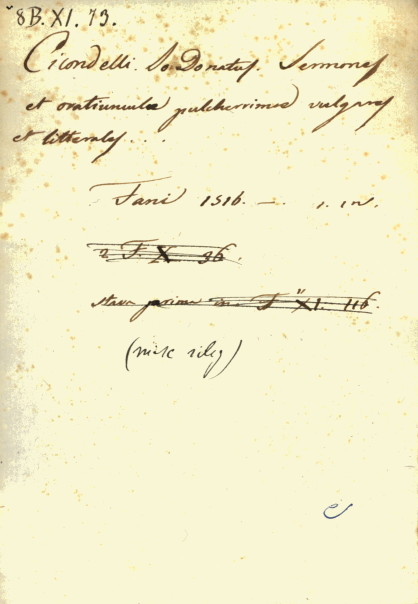 8B. XI. 73.
Cicondelli. Io. Donatus. Sermones
et oratiunculæ pulcherrimæ vulgares
et litterales...
Fani 1516. — . 1. in.
2 F. X 36.
stava prima in F XI. 116.
(misc rileg)